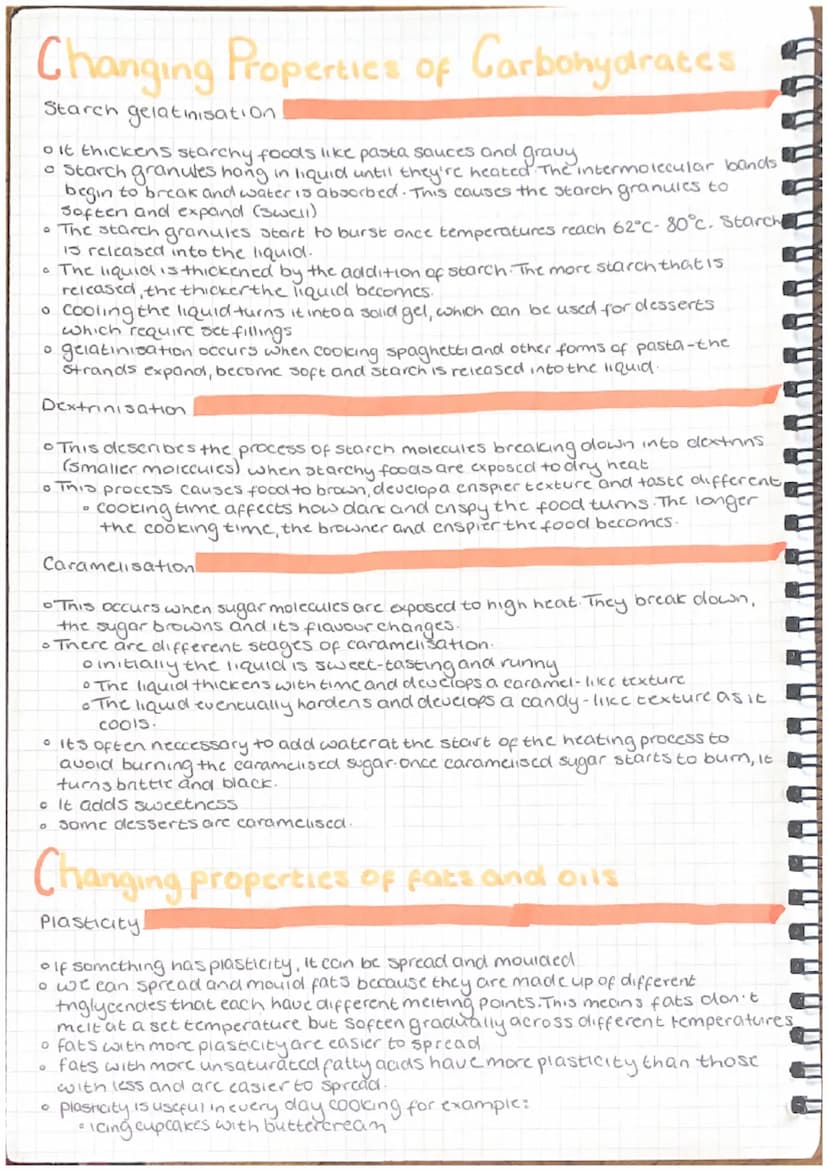 Changing Properties of Carbohydrates
Starch gelatinisation
o It thickens starchy foods like pasta sauces and gravy
o Starch granules hang in liquid until they're heated. The intermolecular bonds
begin to break and water is absorbed. This causes the starch granules to
soften and expand (swell)
o The starch granules start to burst once temperatures reach 62°C - 80°C. Starch
is released into the liquid.
o The liquid is thickened by the addition of starch. The more starch that is
released, the thicker the liquid becomes.
o Cooling the liquid turns it into a solid gel, which can be used for desserts
which require set fillings
o gelatinisation occurs when cooking spaghetti and other forms of pasta - the
strands expand, become soft and starch is released into the liquid.
Dextrinisation
o This describes the process of starch molecules breaking down into dextrins
(smaller molecules) when starchy foods are exposed to dry heat
o This process causes food to brown, develop a crispier texture and taste different
o cooking time affects how dark and crispy the food turns. The longer
the cooking time, the browner and crispier the food becomes.
Caramelisation
o This occurs when sugar molecules are exposed to high heat. They break down,
the sugar browns and its flavour changes.
o There are different stages of caramelisation.
o initially the liquid is sweet-tasting and runny
o The liquid thickens with time and develops a caramel-like texture
o The liquid eventually hardens and develops a candy-like texture as it
cools.
o It's often neccessary to add water at the start of the heating process to
avoid burning the caramelised sugar. once caramelised sugar starts to burn, it
turns brittle and black.
o It adds sweetness
o some desserts are caramelised.
Changing properties of fats and oils
Plasticity
o If something has plasticity, it can be spread and moulded
o we can spread and mould fats because they are made up of different
triglycerides that each have different melting points. This means fats don't
melt at a set temperature but soften gradually across different temperatures
o fats with more plasticity are easier to spread
o fats with more unsaturated fatty acids have more plasticity than those
with less and are easier to spread.
o plasticity is useful in every day cooking for example:
o icing cupcakes with buttercream